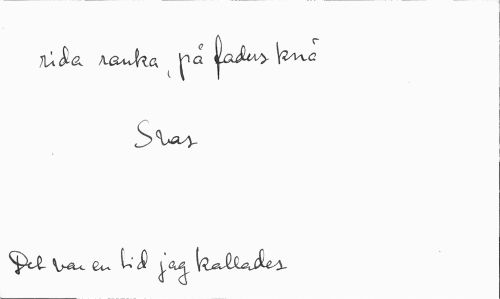 rida ranka, på faders knä
Svar
Det var en tid jag kallades